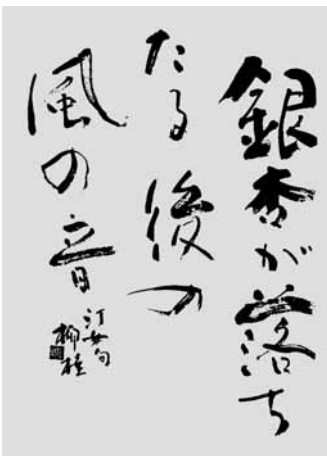 銀杏が落ち
たる後の
風の音
汀女句
柳桂